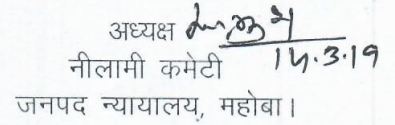 अध्यक्ष
14.3.19
नीलामी कमेटी
जनपद न्यायालय, महोबा।